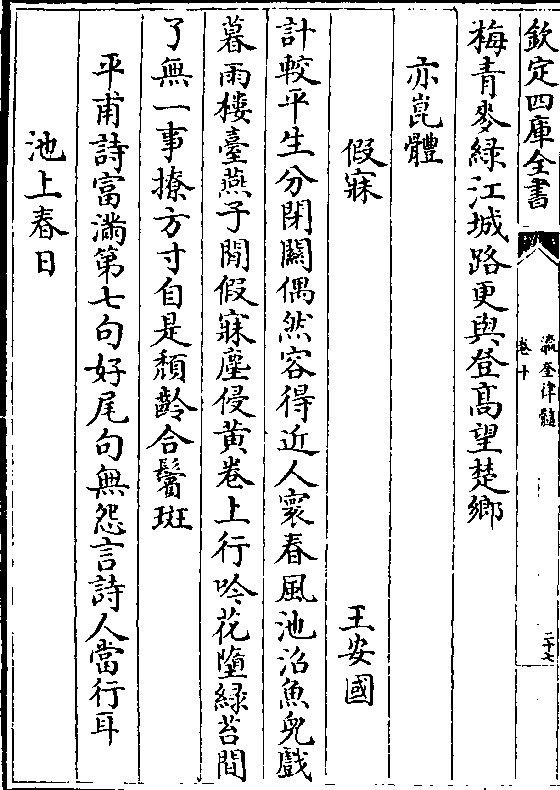 欽定四庫全書
瀛奎律髓
卷十
二十七
梅青麥綠江城路更與登髙望楚鄉
亦崑體
假寐
王安國
計較平生分閉闗偶然容得近人寰春風池沼魚兒戲
暮雨樓臺燕子閒假寐塵侵黃卷上行吟花墮緑苔間
了無一事撩方寸自是頽齡合鬢斑
平甫詩富滿第七句好尾句無怨言詩人當行耳
池上春日